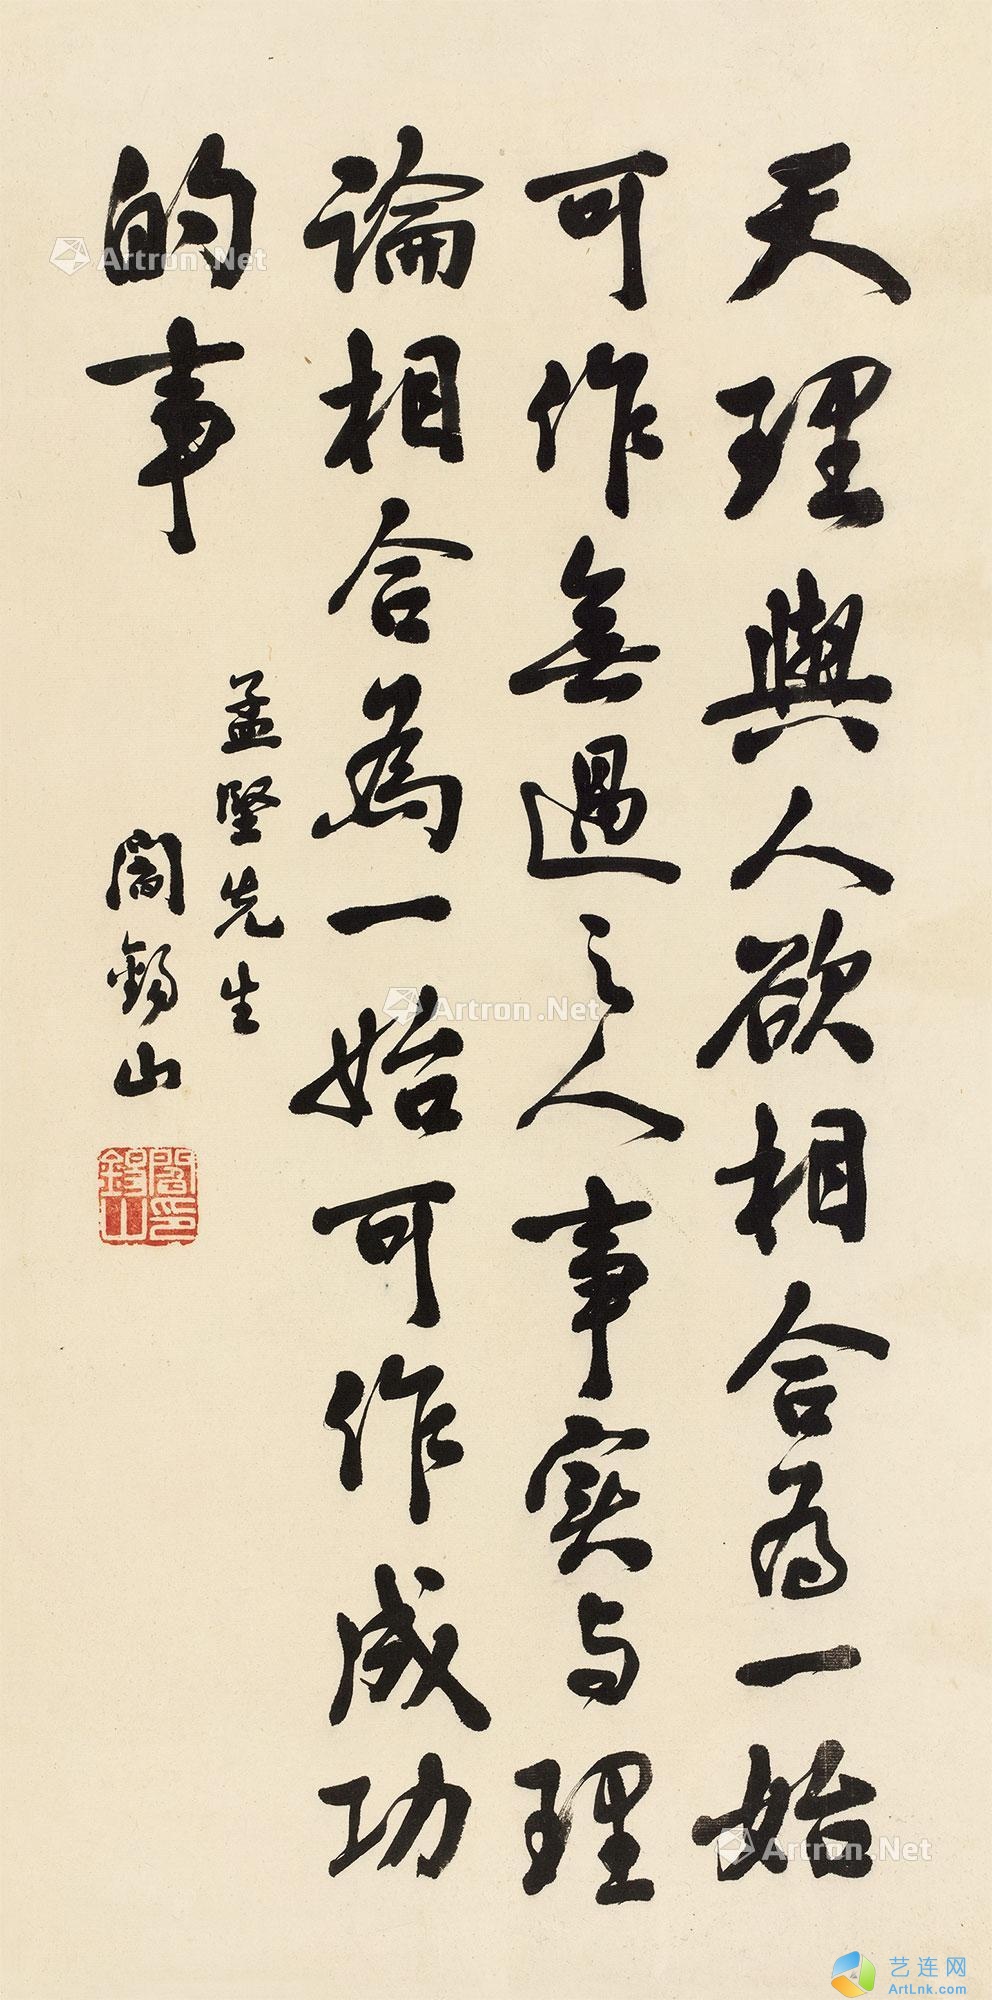 天理與人欲相合為一始
可作無過之人事实与理
論相合為一始可作成功
的事
孟堅先生
閻錫山
閻錫山印
Artron.Net
Artron.Net
Artron.Net
艺连网
ArtLnk.com